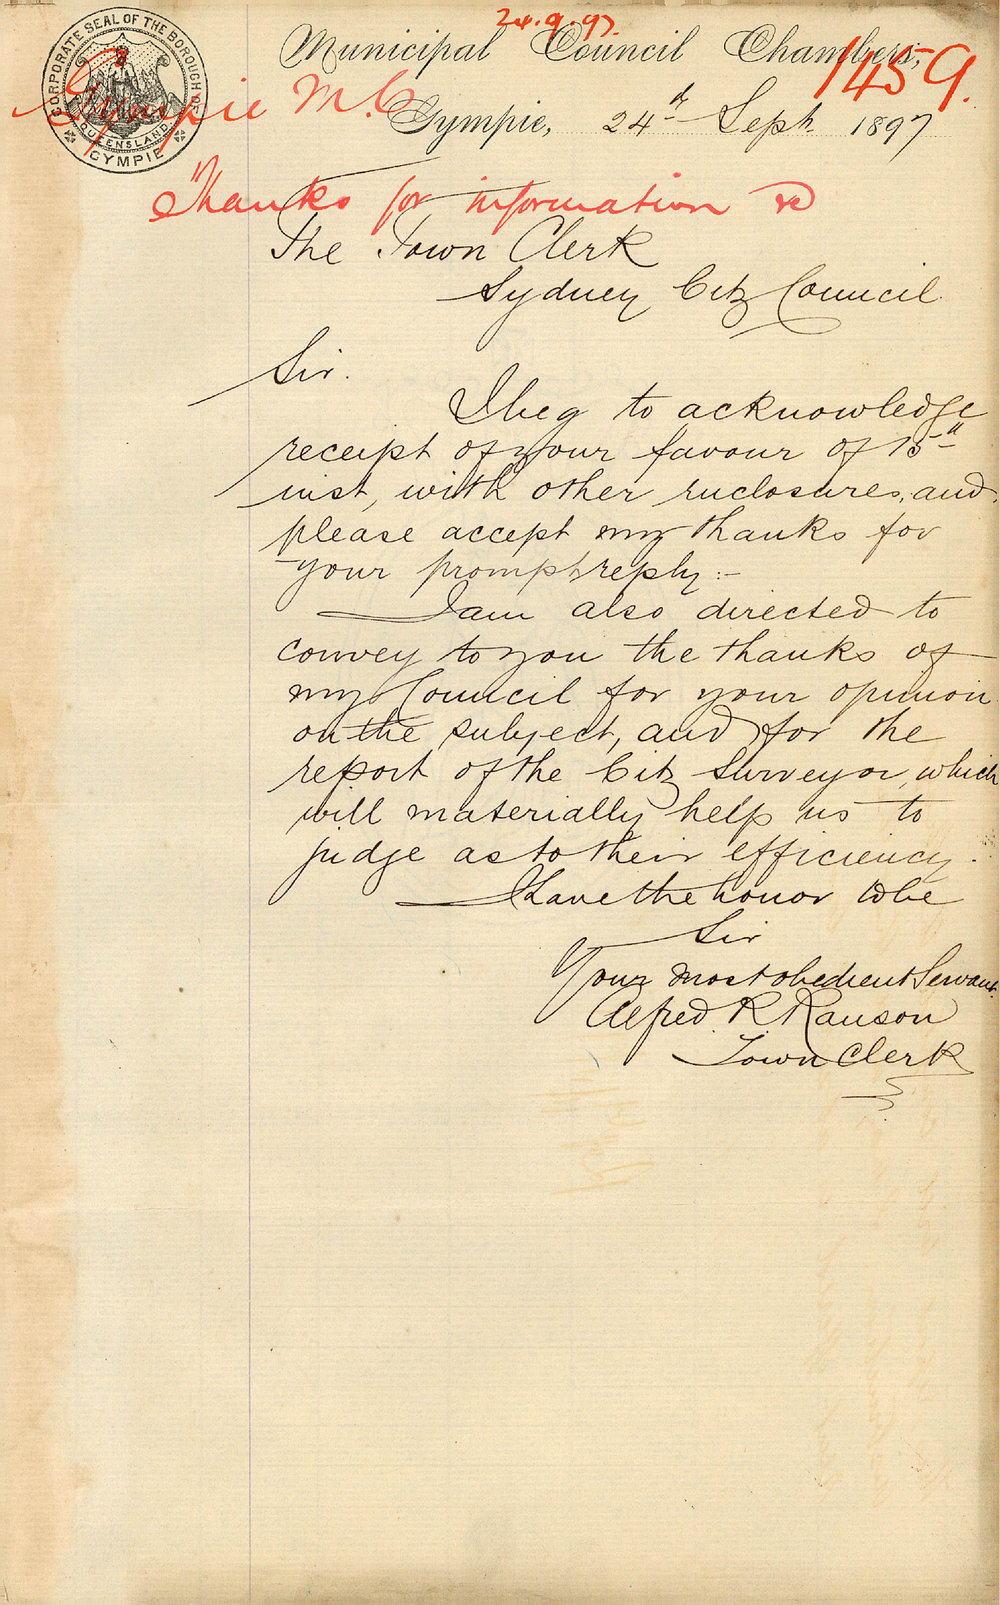 24.9.97.
Municipal Council Chambers,
1459.
CORPORATE SEAL OF THE BOROUGH OF
GYMPIE
QUEENSLAND
Gympie M.C.
Gympie, 24th Sept. 1897
Thanks for information re
The Town Clerk
Sydney City Council
Sir.
I beg to acknowledge
receipt of your favour of 15th
inst, with other enclosures, and
please accept my thanks for
your prompt reply:-
I am also directed to
convey to you the thanks of
my Council for your opinion
on the subject, and for the
report of the City Surveyor, which
will materially help us to
judge as to their efficiency.
I have the honor to be
Sir
Your most obedient Servant.
Alfred R. Ranson
Town Clerk